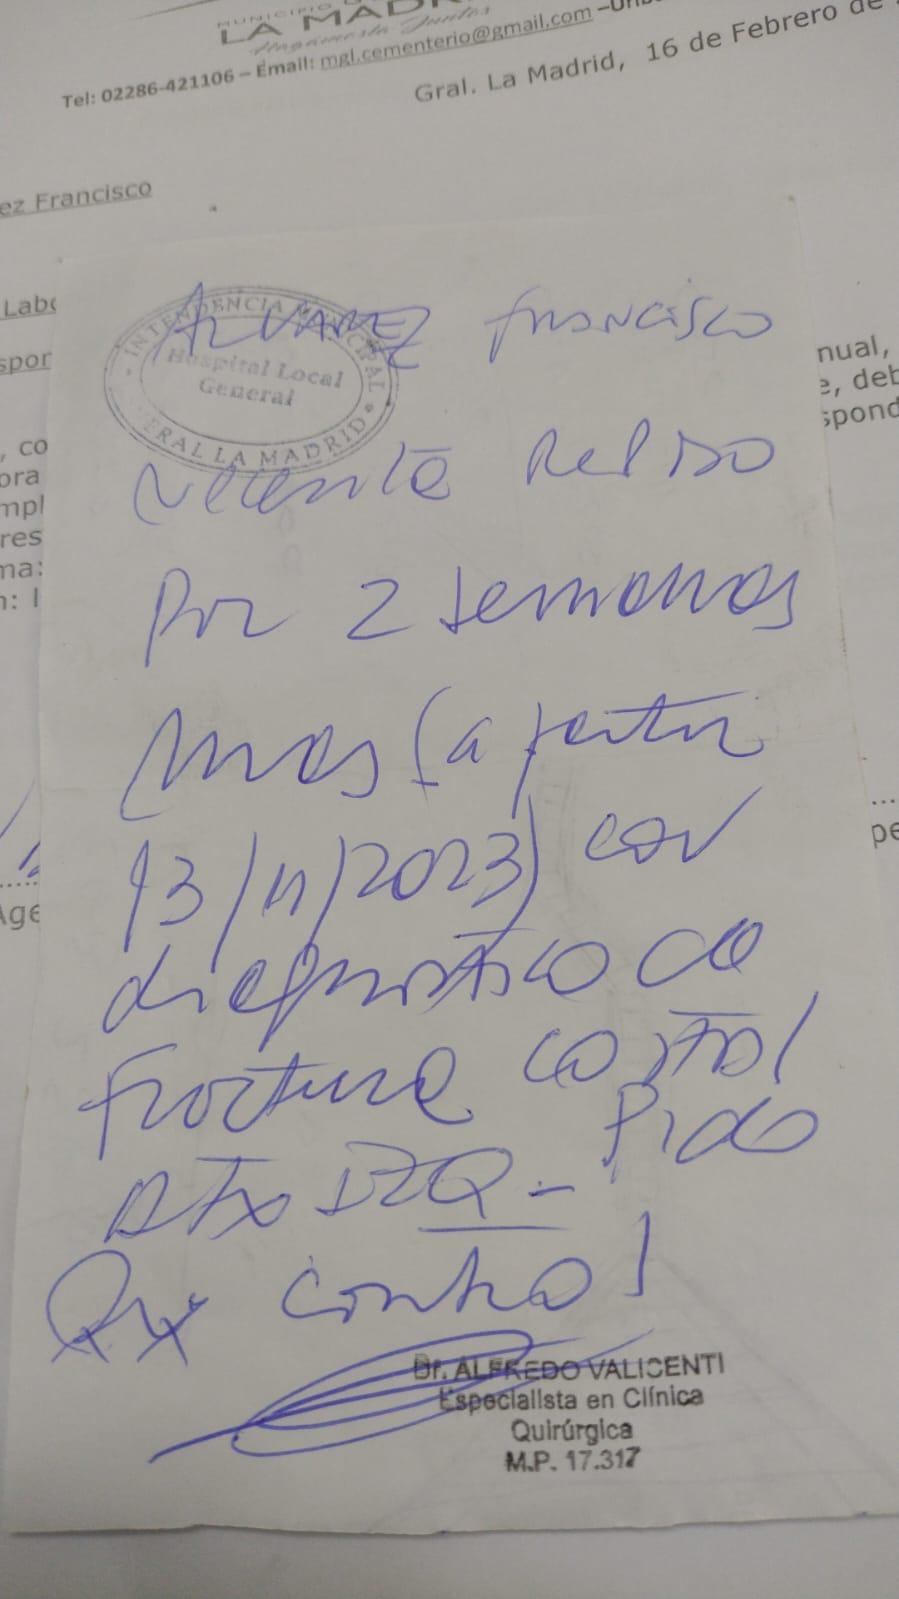 MUNICIPIO
LA MADR
Hagámoslo Juntos
Tel: 02286-421106 – Email: mgl.cementerio@gmail.com –
Gral. La Madrid, 16 de Febrero de
ez Francisco
Labo
spor
nual,
e, deb
spond
, co
ora
mpl
res
ma:
n: I
INTENDENCIA MUNICIPAL
Hospital Local
General
ERAL LA MADRID
ALVAREZ Francisco
Necesita Reposo
Por 2 semanas
mas (a partir
13/11/2023) con
diagnostico de
Fractura costal
HTx IZQ - Pido
Rx control
Dr. ALFREDO VALICENTI
Especialista en Clínica
Quirúrgica
M.P. 17.317
Age
pe